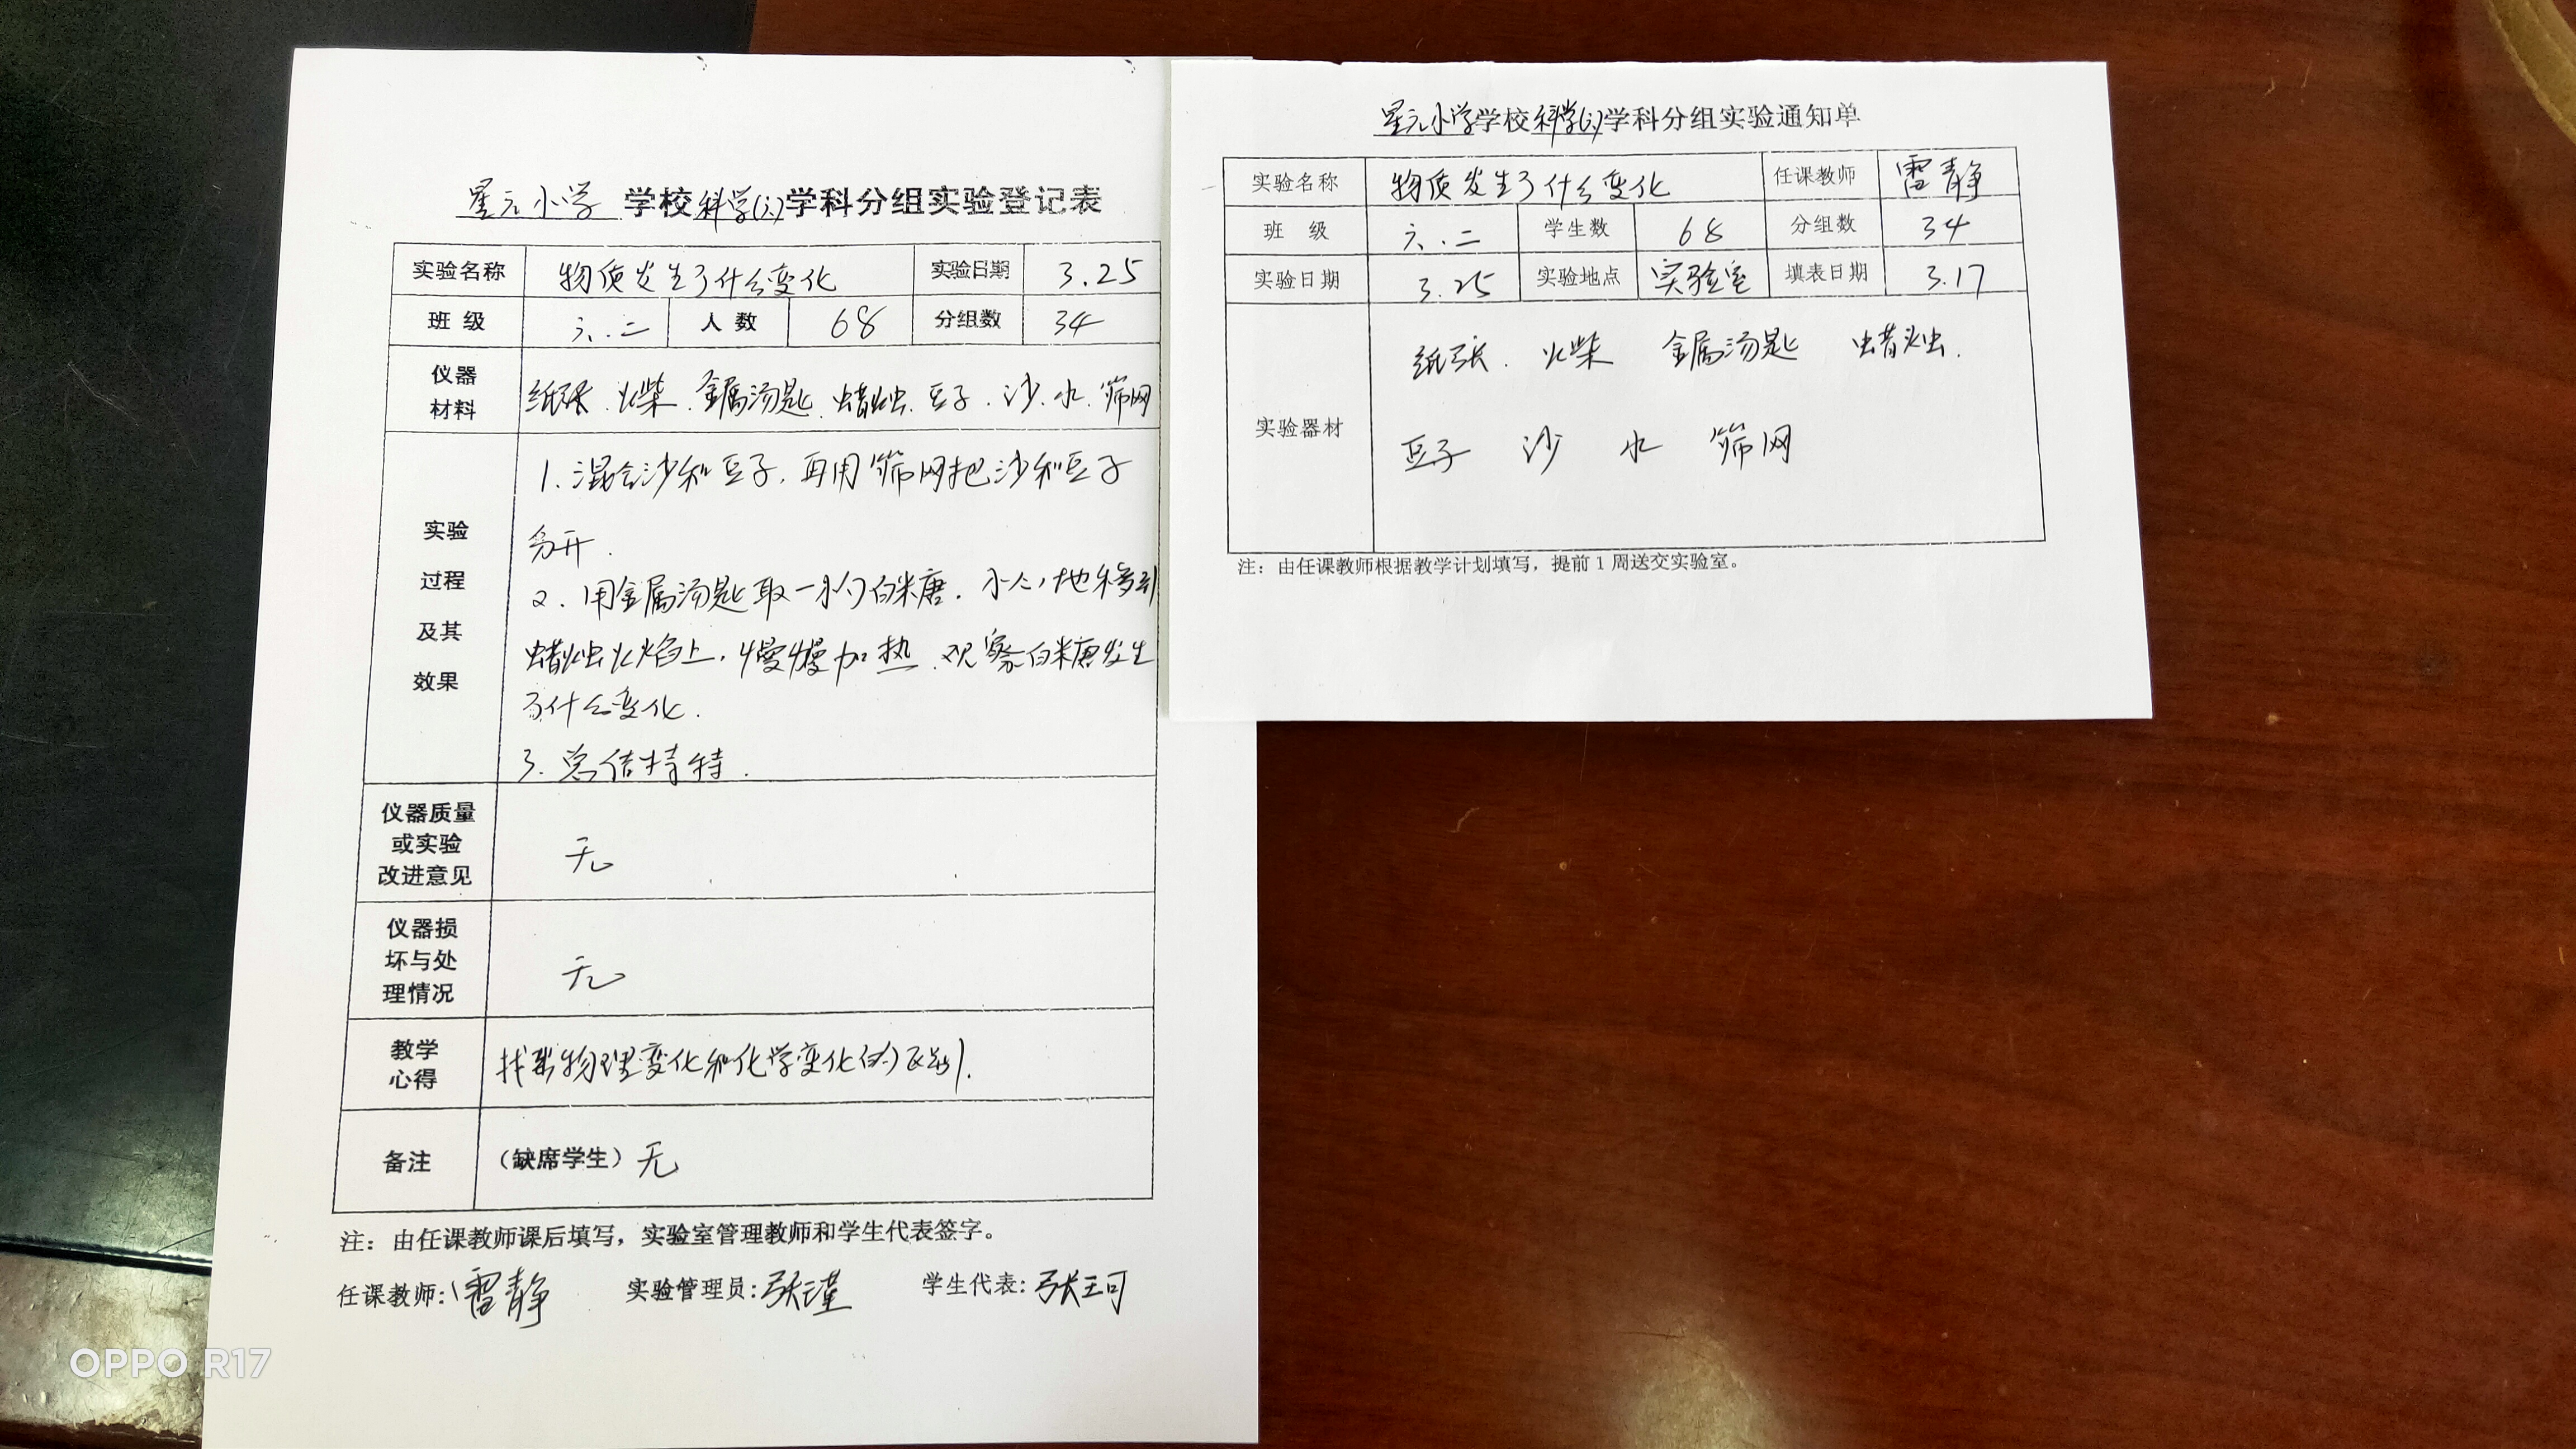 星元小学 学校科学(六)学科分组实验登记表
实验名称 物质发生了什么变化 实验日期 3.25
班 级 六.二 人 数 68 分组数 34
仪器
材料
纸张.火柴.金属汤匙.蜡烛.豆子.沙.水.筛网
实验
过程
及其
效果
1.混合沙和豆子,再用筛网把沙和豆子
分开.
2.用金属汤匙取一小勺白米唐.小心地移到
蜡烛火焰上,慢慢加热.观察白米唐发生
了什么变化.
3.总结特
仪器质量
或实验
改进意见
无
仪器损
坏与处
理情况
无
教学
心得
找出物理变化和化学变化的区别.
备注 (缺席学生) 无
注：由任课教师课后填写，实验室管理教师和学生代表签字。
任课教师:雷静 实验管理员:张瑾 学生代表:张珂
星元小学学校科学(六)学科分组实验通知单
实验名称 物质发生了什么变化 任课教师 雷静
班 级 六.二 学生数 68 分组数 34
实验日期 3.25 实验地点 实验室 填表日期 3.17
实验器材
纸张. 火柴 金属汤匙 蜡烛.
豆子 沙 水 筛网
注：由任课教师根据教学计划填写，提前1周送交实验室。
OPPO R17